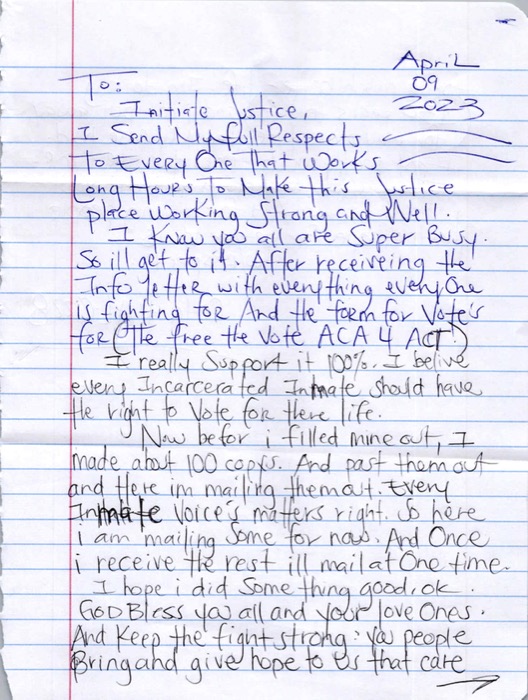 April
09
2023
To:
Initiate Justice,
I Send My full Respects
To Every One That Works
Long Hours To Make this Justice
place Working Strong and Well.
I Know you all are Super Busy.
So ill get to it. After receiveing the
Info letter with everything everyOne
is fighting for And the form for Vote's
for (The free the Vote ACA 4 ACT)
I really Support it 100%. I belive
every Incarcerated Inmate should have
the right to Vote for there life.
Now befor i filled mine out, I
made about 100 copys. And past them out
and Here im mailing them out. Every
Inmate Voice's matters right. So here
i am mailing Some for now. And Once
i receive the rest ill mail at One time.
I hope i did Something good, ok.
GOD Bless you all and your love Ones.
And Keep the fight strong: you people
Bring and give hope to Us that care